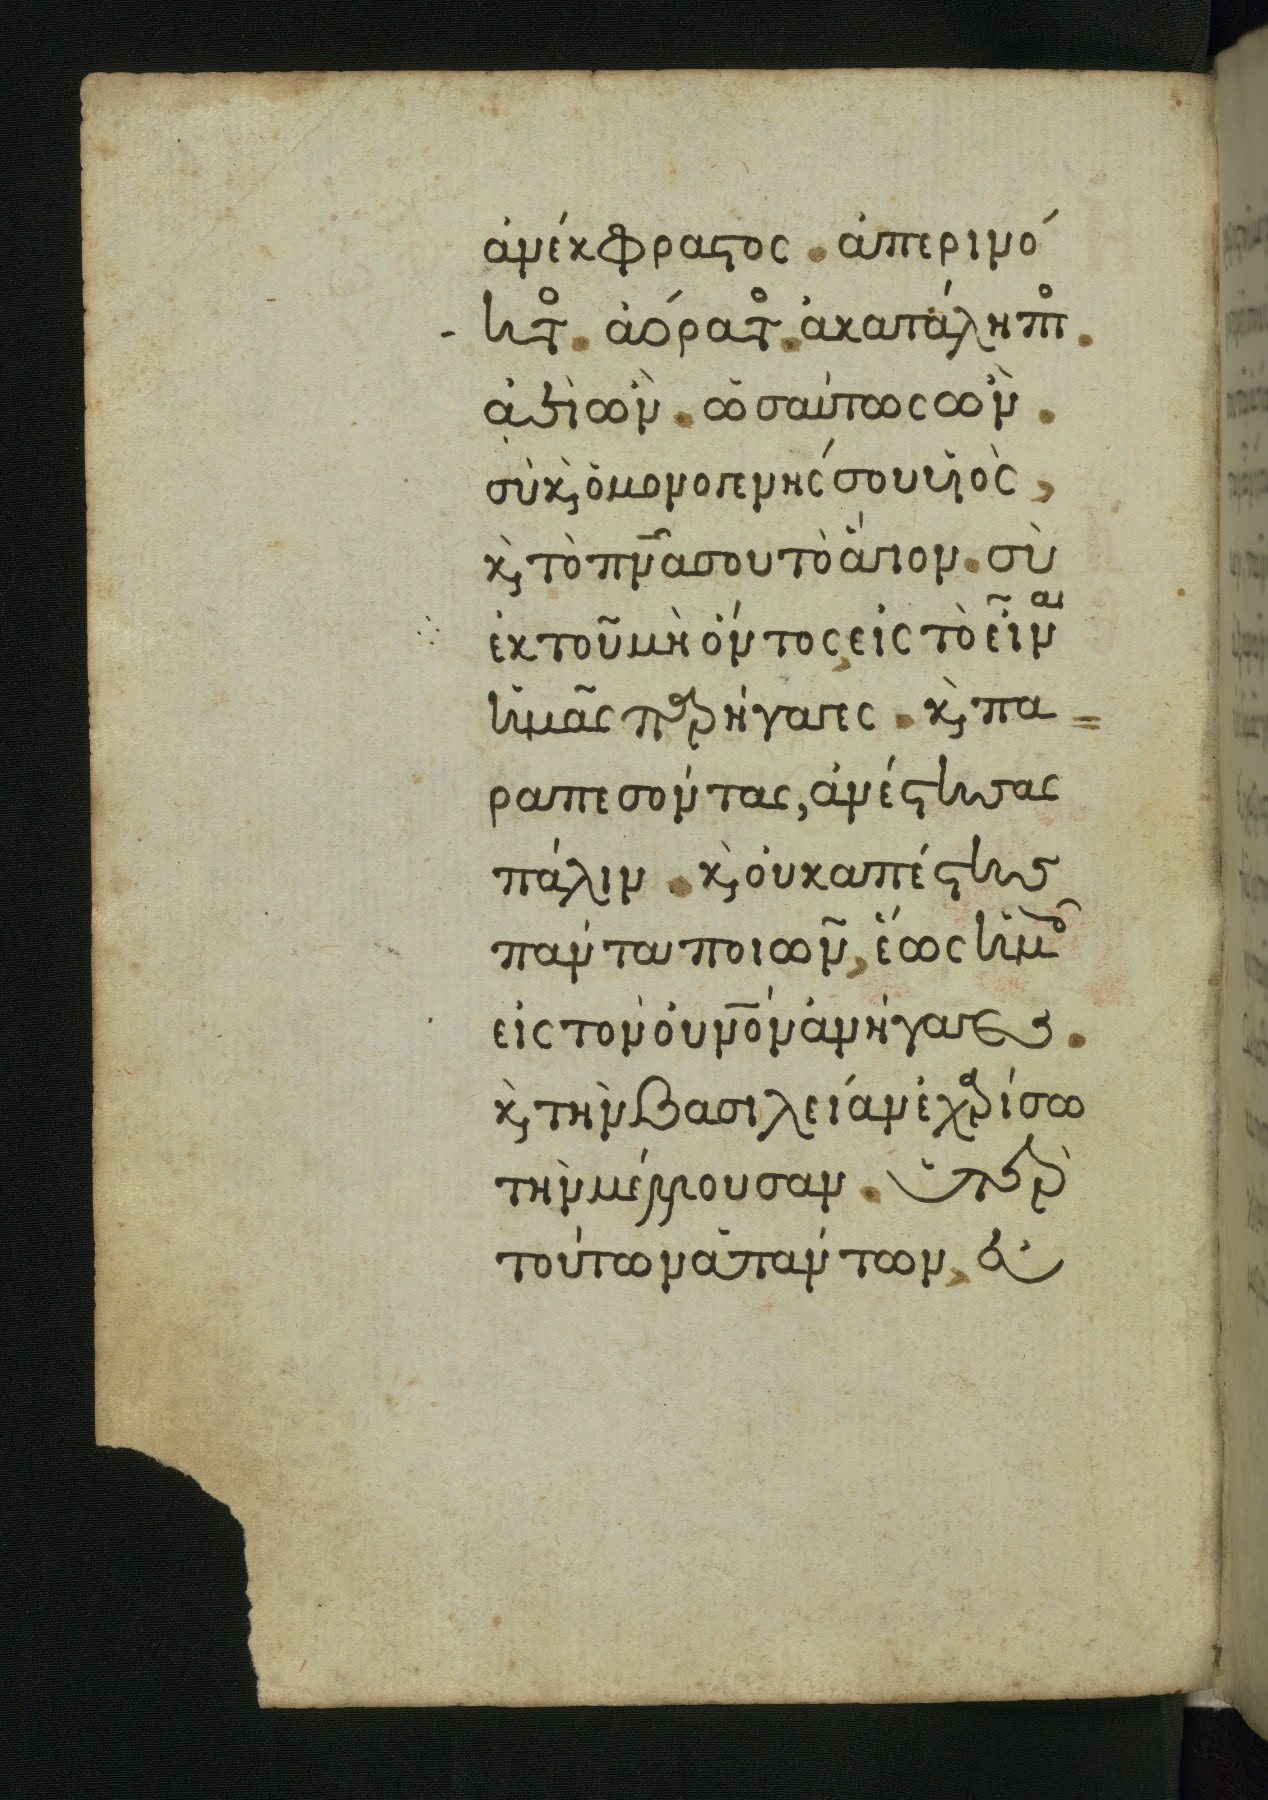 ἀνέκφραστος . ἀπερινό
ητ̊ . ἀόρατ̊ . ἀκατάληπτ̊ .
ἀεὶ ὢν . ὡσαύτως ὢν .
σὺ κ̀ ὁ μονογενής σου υἱὸς ,
κ̀ τὸ πν̅α σου τὸ ἅγιον . σὺ
ἐκ τοῦ μὴ ὄντος, εἰς τὸ εἶναι
ἡμᾶς παρήγαγες . κ̀ πα
ραπεσόντας, ἀνέστησας
πάλιν . κ̀ οὐκ ἀπέστης
πάντα ποιῶν, ἕως ἡμᾶς
εἰς τὸν οὐν̅όν ἀνήγαγες .
κ̀ τὴν βασιλείαν ἐχαρίσω
τὴν μέλλουσαν . ὑπὲρ
τούτων ἁπάντων, εὐ